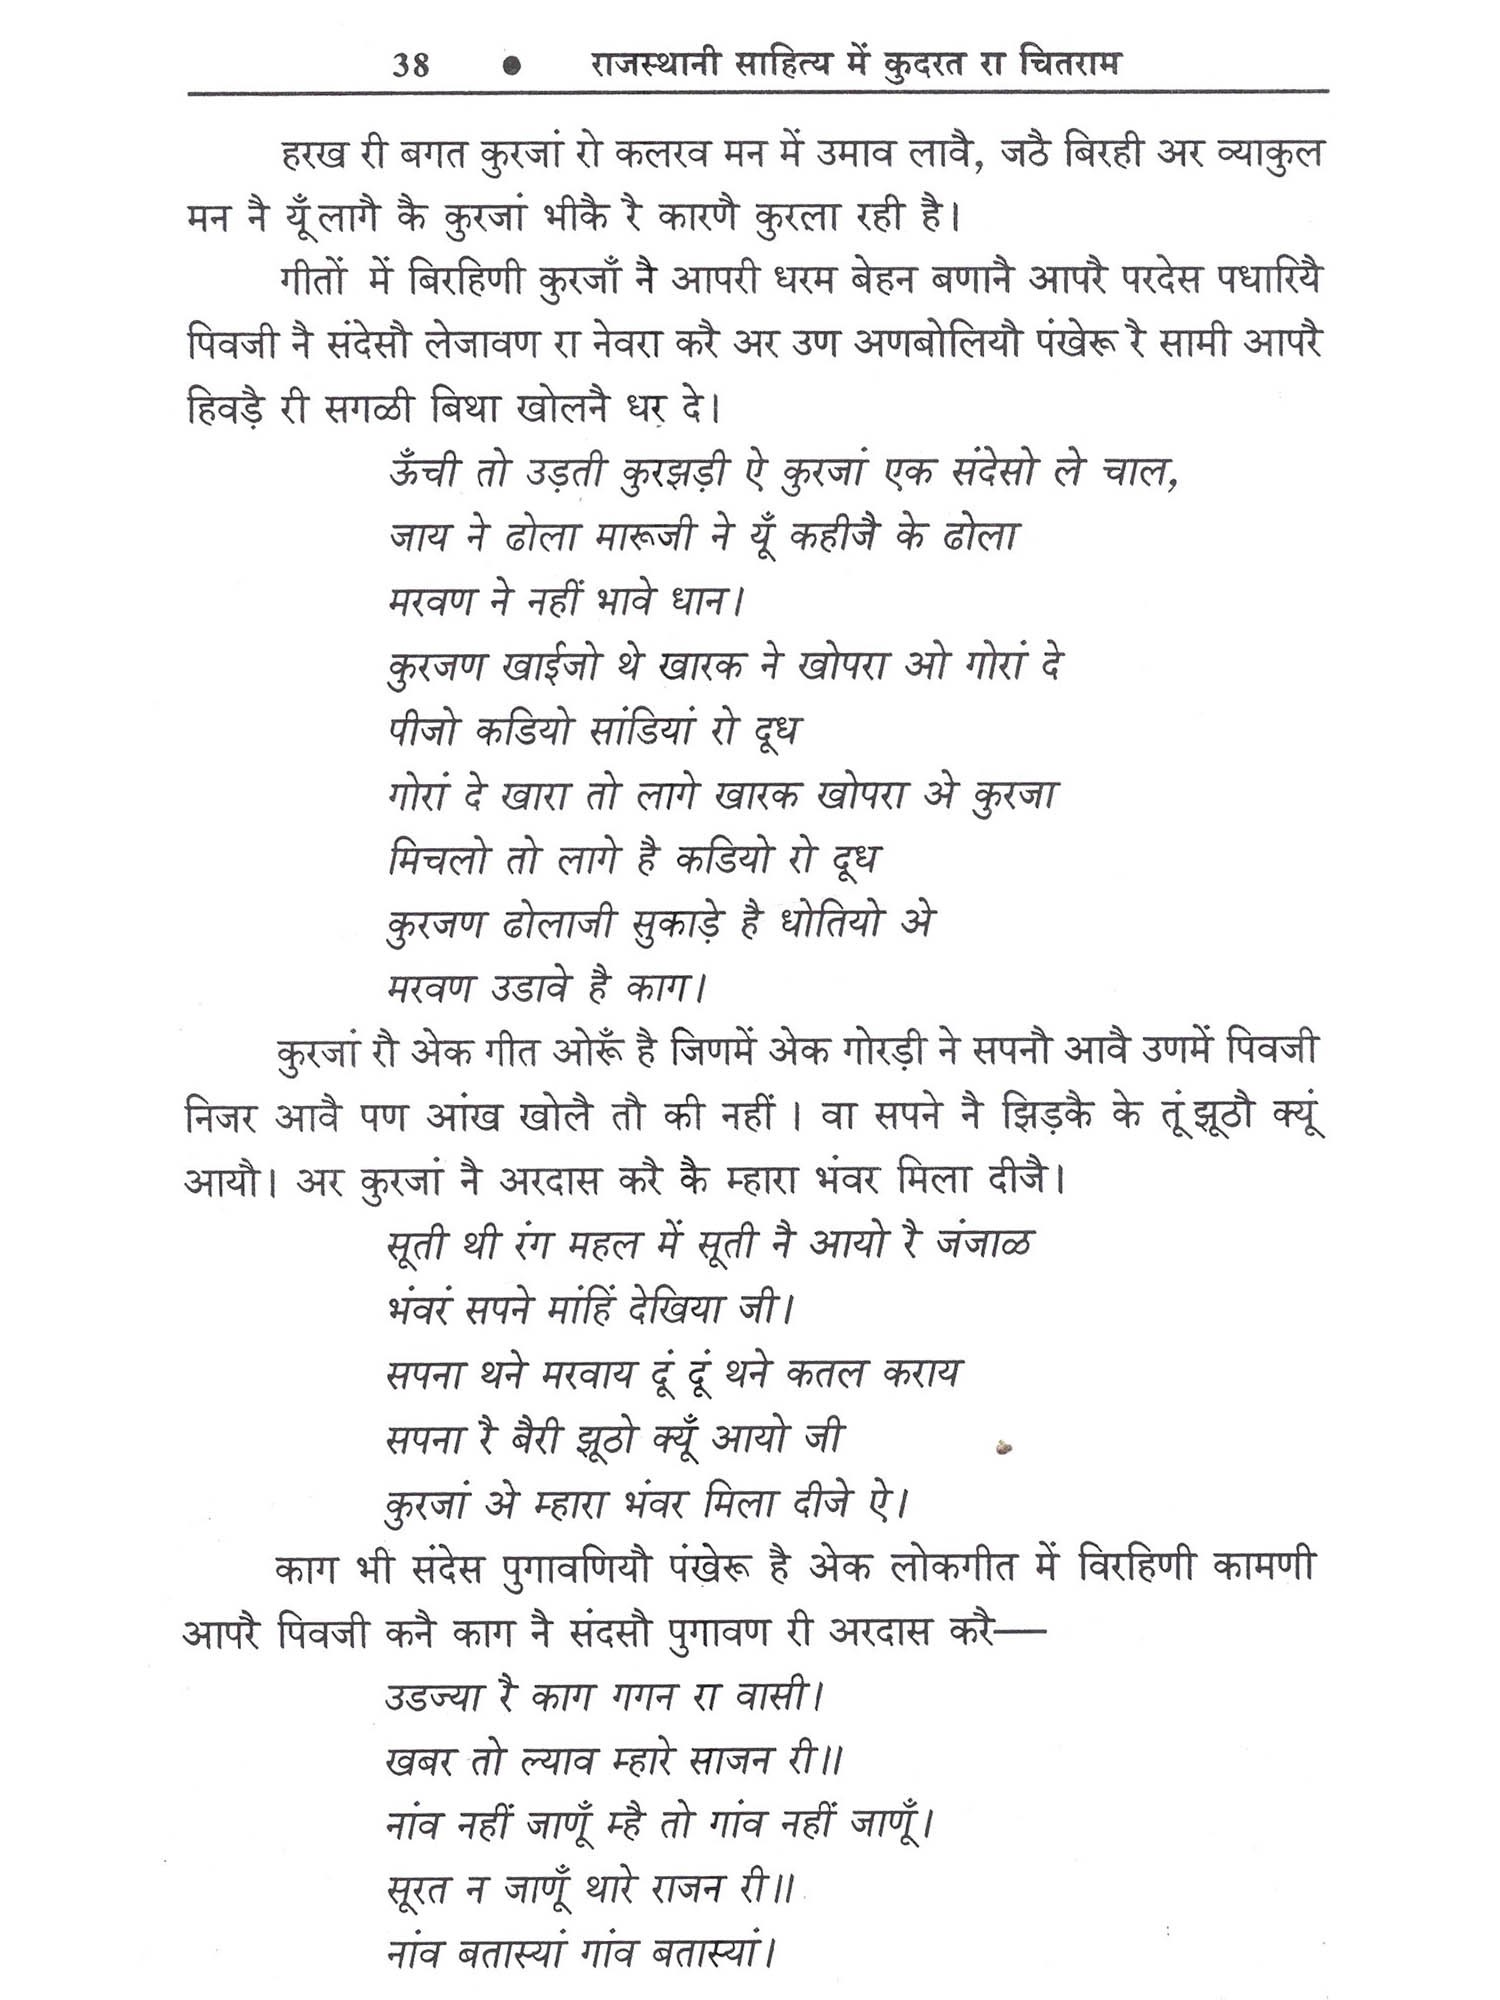 38 ● राजस्थानी साहित्य में कुदरत रा चितराम
हरख री बगत कुरजां रो कलरव मन में उमाव लावै, जठै बिरही अर व्याकुल
मन नै यूँ लागै कै कुरजां भीकै रै कारणै कुरला रही है।
गीतों में बिरहिणी कुरजाँ नै आपरी धरम बेहन बणानै आपरै परदेस पधारियै
पिवजी नै संदेसौ लेजावण रा नेवरा करै अर उण अणबोलियौ पंखेरू रै सामी आपरै
हिवड़ै री सगळी बिथा खोलनै धर दे।
ऊँची तो उड़ती कुरझड़ी ऐ कुरजां एक संदेसो ले चाल,
जाय ने ढोला मारूजी ने यूँ कहीजै के ढोला
मरवण ने नहीं भावे धान।
कुरजण खाईजो थे खारक ने खोपरा ओ गोरां दे
पीजो कडियो सांडियां रो दूध
गोरां दे खारा तो लागे खारक खोपरा अे कुरजा
मिचलो तो लागे है कडियो रो दूध
कुरजण ढोलाजी सुकाड़े है धोतियो अे
मरवण उडावे है काग।
कुरजां रौ अेक गीत ओरूँ है जिणमें अेक गोरड़ी ने सपनौ आवै उणमें पिवजी
निजर आवै पण आंख खोलै तौ की नहीं। वा सपने नै झिड़कै के तूं झूठौ क्यूं
आयौ। अर कुरजां नै अरदास करै कै म्हारा भंवर मिला दीजै।
सूती थी रंग महल में सूती नै आयो रै जंजाळ
भंवरं सपने मांहिं देखिया जी।
सपना थने मरवाय दूं दूं थने कतल कराय
सपना रै बैरी झूठो क्यूँ आयो जी
कुरजां अे म्हारा भंवर मिला दीजे ऐ।
काग भी संदेस पुगावणियौ पंखेरू है अेक लोकगीत में विरहिणी कामणी
आपरै पिवजी कनै काग नै संदसौ पुगावण री अरदास करै—
उडज्या रै काग गगन रा वासी।
खबर तो ल्याव म्हारे साजन री॥
नांव नहीं जाणूँ म्है तो गांव नहीं जाणूँ।
सूरत न जाणूँ थारे राजन री॥
नांव बतास्यां गांव बतास्यां।